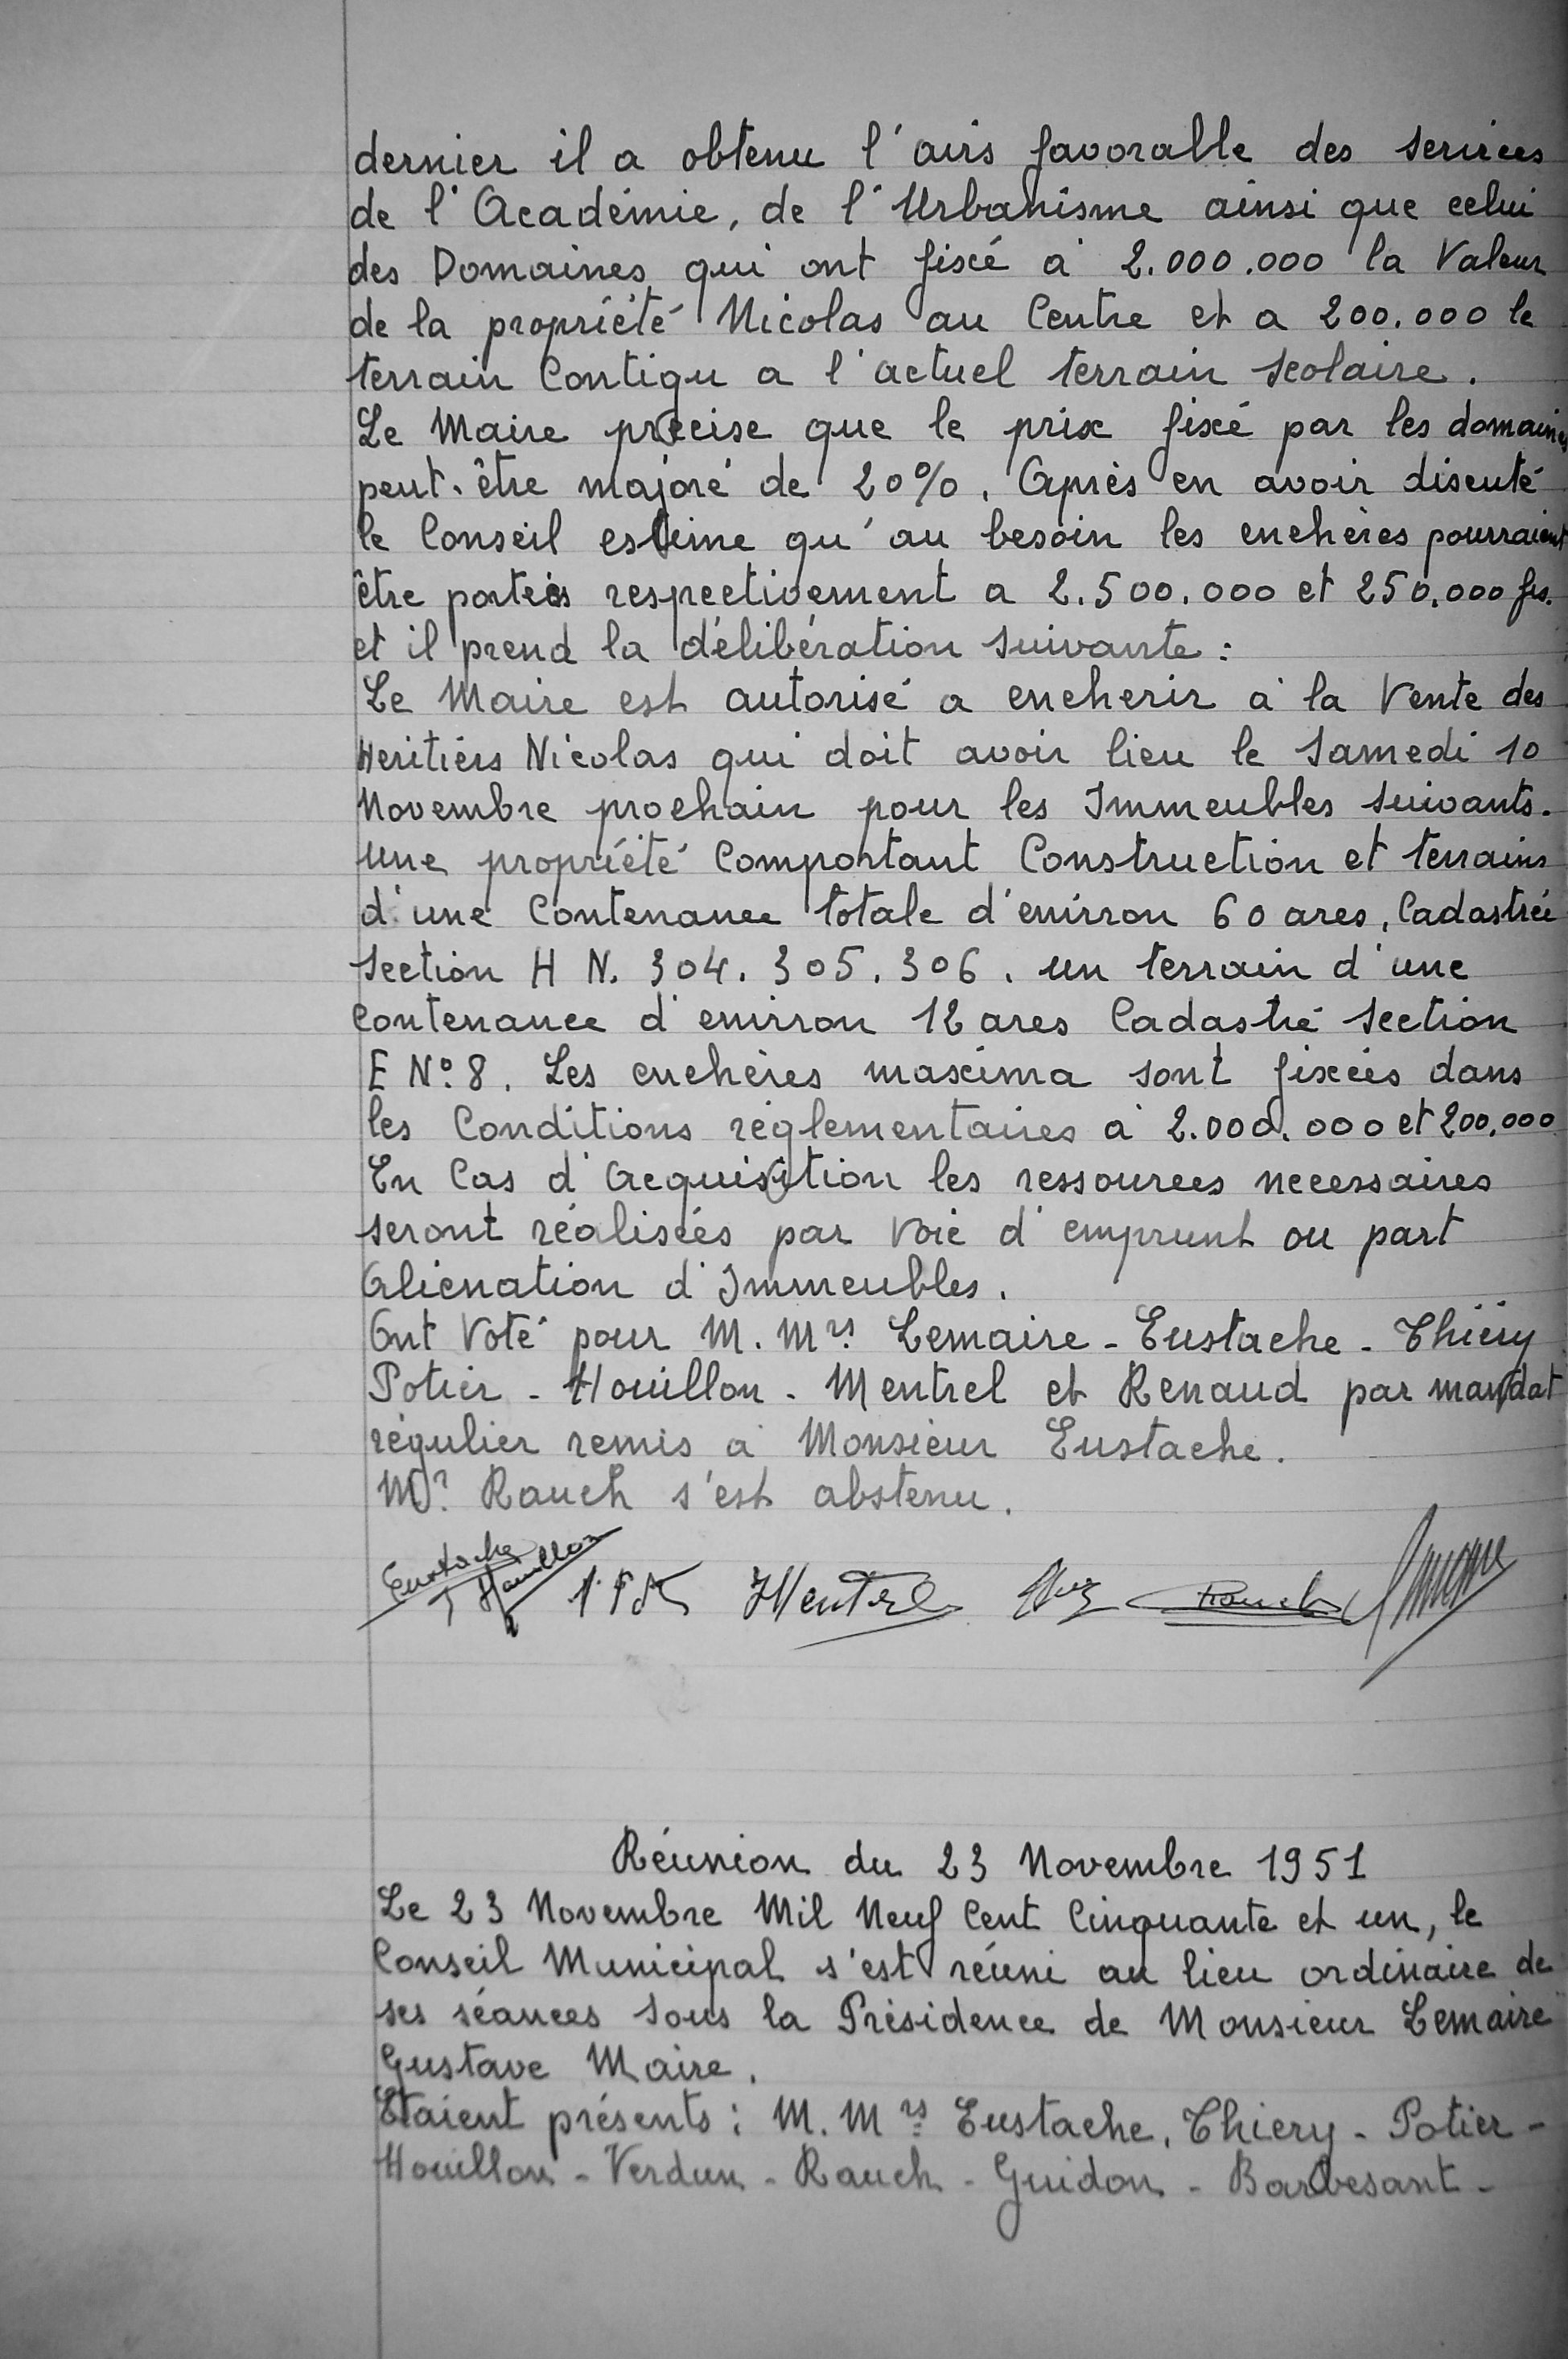 dernier il a obtenu l'avis favorable des services
de l'Académie, de l'Urbanisme ainsi que celui
des Domaines qui ont fixé à 2.000.000 la Valeur
de la propriété Nicolas au Centre et a 200.000 le
terrain Contigu a l'actuel terrain scolaire.
Le Maire précise que le prix fixé par les domaines
peut-être majoré de 20%. Après en avoir discuté
le Conseil estime qu'au besoin les enchères pourraient
être portées respectivement a 2.500.000 et 250.000 frs.
et il prend la délibération suivante :
Le Maire est autorisé a encherir à la Vente des
Heritiers Nicolas qui doit avoir lieu le Samedi 10
Novembre prochain pour les Immeubles suivants.
Une propriété Comportant Construction et terrains
d'une Contenance totale d'environ 60 ares, Cadastrée
Section H N. 304. 305. 306. un terrain d'une
contenance d'environ 12 ares Cadastré Section
E N° 8. Les enchères maxima sont fixées dans
les Conditions réglementaires à 2.000.000 et 200.000
En Cas d'Acquisition les ressources necessaires
seront réalisées par Voie d'emprunt ou part
Alienation d'Immeubles.
Ont Voté pour M. Mrs Lemaire - Eustache - Thiéry
Potier - Houillon - Mentrel et Renaud par mandat
régulier remis à Monsieur Eustache.
Mr Rauch s'est abstenu.
Eustache
Houillon Mentrel Rauch
Réunion du 23 Novembre 1951
Le 23 Novembre Mil Neuf Cent Cinquante et un, le
Conseil Municipal s'est réuni au lieu ordinaire de
ses séances sous la Présidence de Monsieur Lemaire
Gustave Maire.
Etaient présents : M. Mrs Eustache, Thiery - Potier -
Houillon - Verdun - Rauch - Guidon - Barbesant -